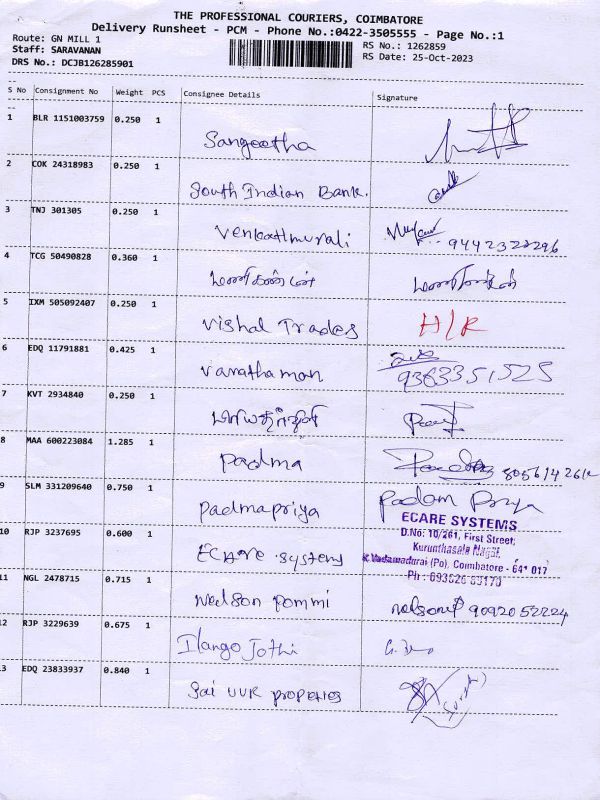 THE PROFESSIONAL COURIERS, COIMBATORE
Delivery Runsheet - PCM - Phone No.:0422-3505555 - Page No.:1
Route: GN MILL 1
Staff: SARAVANAN
DRS No.: DCJB126285901
RS No.: 1262859
RS Date: 25-Oct-2023
S No Consignment No Weight PCS Consignee Details Signature
1 BLR 1151003759 0.250 1 Sangeetha
2 COK 24318983 0.250 1 South Indian Bank.
3 TNJ 301305 0.250 1 Venkatmurali 9442322296
4 TCG 50490828 0.360 1 மணிகண்டன்
5 IXM 505092407 0.250 1 Vishal Trades H/R
6 EDQ 11791881 0.425 1 Varathaman 9363351525
7 KVT 2934840 0.250 1
8 MAA 600223084 1.285 1 Padma
9 SLM 331209640 0.750 1 Padmapriya Padam Priya
10 RJP 3237695 0.600 1 ECare systems
ECARE SYSTEMS
D.No: 10/261, First Street,
Kurunthasala Nagar,
K.Vadamadurai (Po), Coimbatore - 641 017
Ph : 093626 63170
11 NGL 2478715 0.715 1 Nelson pommi 9092052224
12 RJP 3229639 0.675 1 Ilango Jothi
13 EDQ 23833937 0.840 1 Sai UUR properties